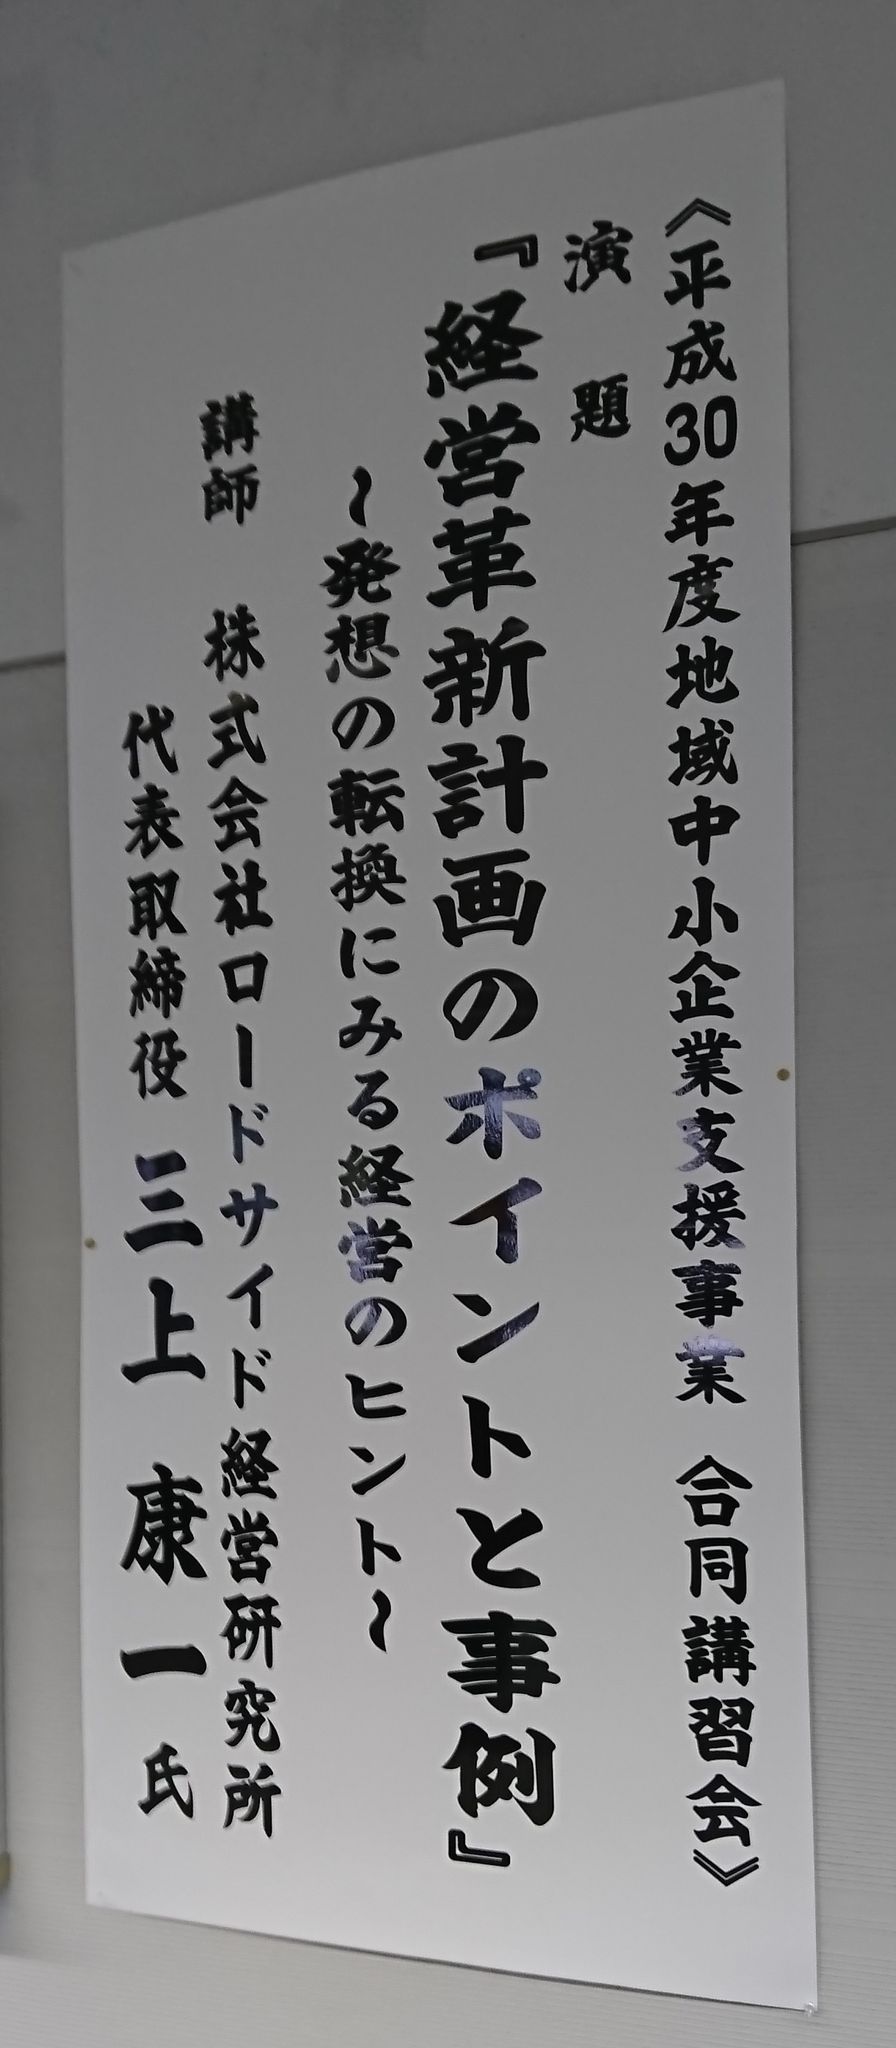 《平成30年度地域中小企業支援事業 合同講習会》
演題
『経営革新計画のポイントと事例』
～発想の転換にみる経営のヒント～
講師 株式会社ロードサイド経営研究所
代表取締役 三上 康一 氏